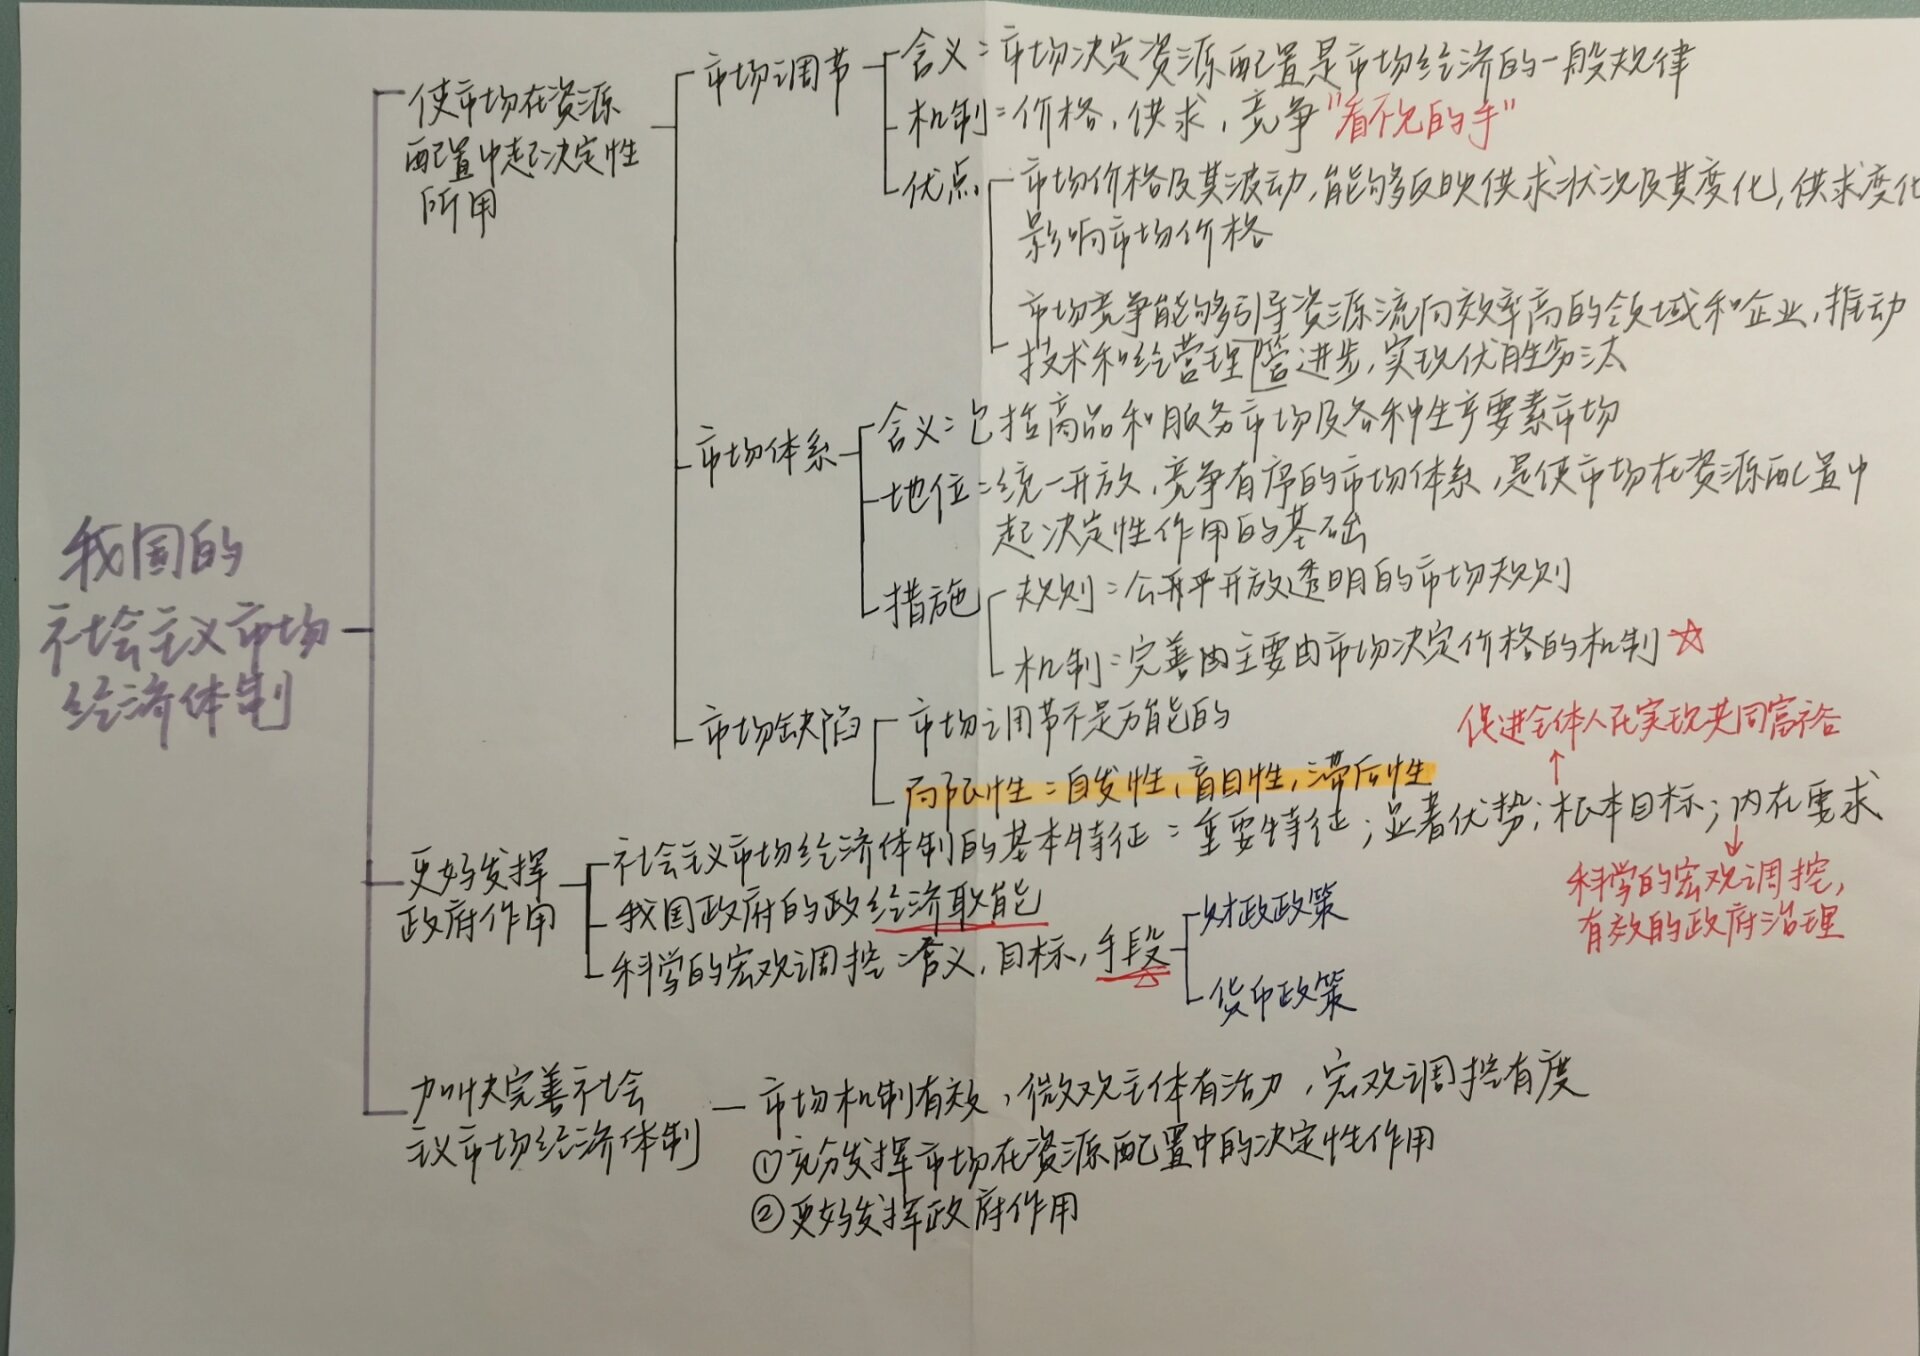 我国的
社会主义市场
经济体制
使市场在资源
配置中起决定性
所用
市场调节
含义：市场决定资源配置是市场经济的一般规律
机制：价格，供求，竞争"看不见的手"
优点
市场价格及其波动，能够反映供求状况及其变化，供求变化
影响市场价格
市场竞争能够引导资源流向效率高的领域和企业，推动
技术和经营理管进步，实现优胜劣汰
市场体系
含义：包括商品和服务市场及各种生产要素市场
地位：统一开放，竞争有序的市场体系，是使市场在资源配置中
起决定性作用的基础
措施
规则：公平开放透明的市场规则
机制：完善由主要由市场决定价格的机制☆
市场缺陷
市场调节不是万能的
局限性：自发性，盲目性，滞后性
促进全体人民实现共同富裕
更好发挥
政府作用
社会主义市场经济体制的基本特征：重要特征；显著优势；根本目标；内在要求
科学的宏观调控，
有效的政府治理
我国政府的政经济职能
科学的宏观调控：含义，目标，手段
财政政策
货币政策
加快完善社会
主义市场经济体制
市场机制有效，微观主体有活力，宏观调控有度
①充分发挥市场在资源配置中的决定性作用
②更好发挥政府作用